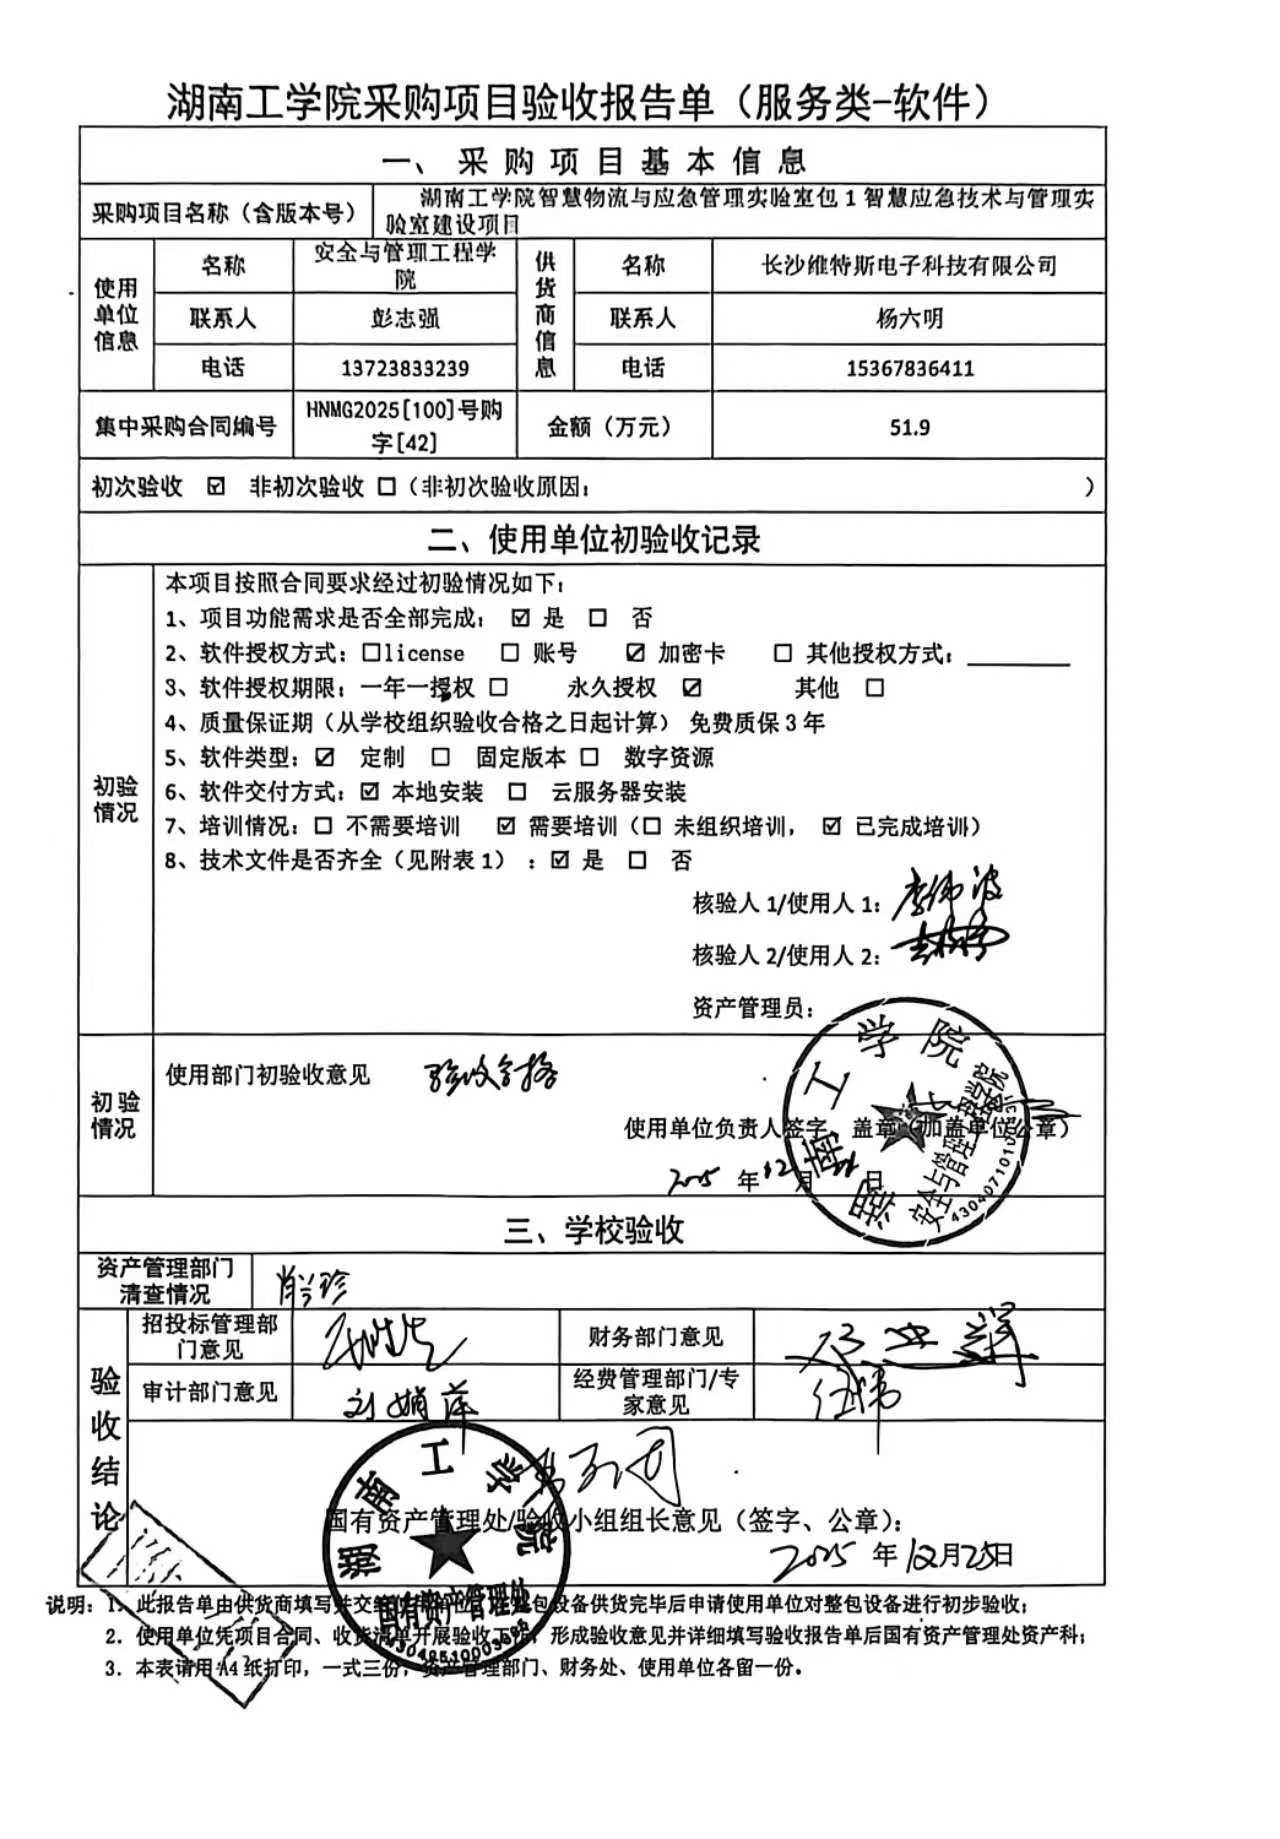 湖南工学院采购项目验收报告单（服务类-软件）
一、采购项目基本信息
采购项目名称（含版本号） 湖南工学院智慧物流与应急管理实验室包1智慧应急技术与管理实
验室建设项目
使用单位信息 名称 安全与管理工程学院 供货商信息 名称 长沙维特斯电子科技有限公司
联系人 彭志强 联系人 杨六明
电话 13723833239 电话 15367836411
集中采购合同编号 HNMG2025[100]号购字[42] 金额（万元） 51.9
初次验收 ☑ 非初次验收 □（非初次验收原因: ）
二、使用单位初验收记录
初验情况
本项目按照合同要求经过初验情况如下:
1、项目功能需求是否全部完成: ☑ 是 □ 否
2、软件授权方式: □license □ 账号 ☑ 加密卡 □ 其他授权方式:
3、软件授权期限: 一年一授权 □ 永久授权 ☑ 其他 □
4、质量保证期（从学校组织验收合格之日起计算） 免费质保3年
5、软件类型: ☑ 定制 □ 固定版本 □ 数字资源
6、软件交付方式: ☑ 本地安装 □ 云服务器安装
7、培训情况: □ 不需要培训 ☑ 需要培训（□ 未组织培训, ☑ 已完成培训）
8、技术文件是否齐全（见附表1）: ☑ 是 □ 否
核验人1/使用人1: 李伟波
核验人2/使用人2:
资产管理员:
初验情况
使用部门初验收意见 验收合格
使用单位负责人签字、盖章（加盖单位公章）
2025 年 12 月 日
湖南工学院
安全与管理工程学院
三、学校验收
资产管理部门清查情况 肖兴珍
验收结论
招投标管理部门意见 财务部门意见
审计部门意见 刘娟萍 经费管理部门/专家意见 伍伟
国有资产管理处/验收小组组长意见（签字、公章）:
2025 年 12 月 25 日
湖南工学院
国有资产管理处
说明: 1. 此报告单由供货商填写并交给使用单位, 包设备供货完毕后申请使用单位对整包设备进行初步验收;
2. 使用单位凭项目合同、收货清单开展验收工作, 形成验收意见并详细填写验收报告单后国有资产管理处资产科;
3. 本表请用A4纸打印, 一式三份, 资产管理部门、财务处、使用单位各留一份。